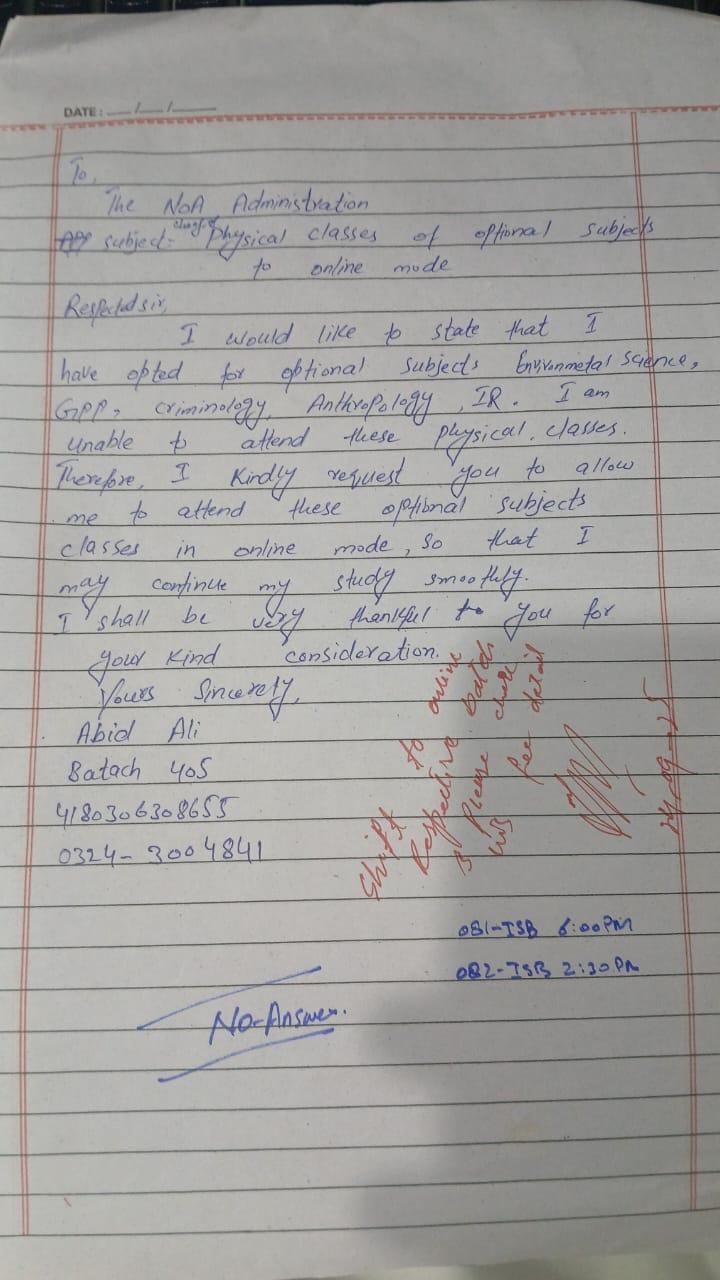 DATE: __/__/____
To,
The NOA Administration
subject:- change of Physical classes of optional subjects
to online mode
Respected sir,
I would like to state that I
have opted for optional subjects Environmetal Science,
GPP, criminology, Anthropology, IR. I am
unable to attend these physical classes.
Therefore, I Kindly request you to allow
me to attend these optional subjects
classes in online mode, so that I
may continue my study smoothly.
I shall be very thankful to you for
your kind consideration.
Yours Sincerely,
Abid Ali
Batach 405
4180306308655
0324-3004841
Shift to online
Respective batch
& Please check
his fee detail
24-09-25
081-ISB 6:00PM
082-ISB 2:30PM
No-Answer.